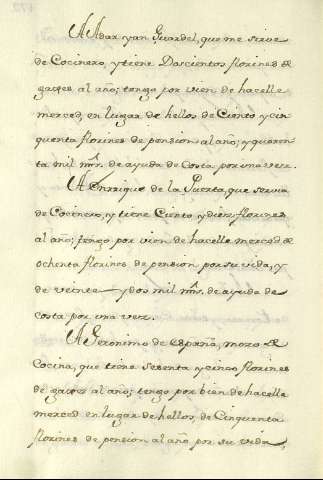 A Adar yan Guardel, que me serve
de Cocinero, y tiene Doscientos florines de
gages al año; tengo por vien de hacelle
merced, en lugar de hellos de Ciento y cin
quenta florines de pension al año; y quaren
ta mil mrs. de ayuda de Costa, por una vez.
A Enrrique de la Puerta, que servia
de Cocinero, y tiene Ciento y diez florines
al año; tengo por vien de hacelle merced de
ochenta florines de pension por su vida, y
de veinte y dos mil mrs. de ayuda de
costa por una vez.
A Geronimo de España, mozo de
Cocina, que tiene sesenta y cinco florines
de gages al año; tengo por bien de hacelle
merced en lugar de hellos, de Cinquenta
florines de pension al año por su vida,